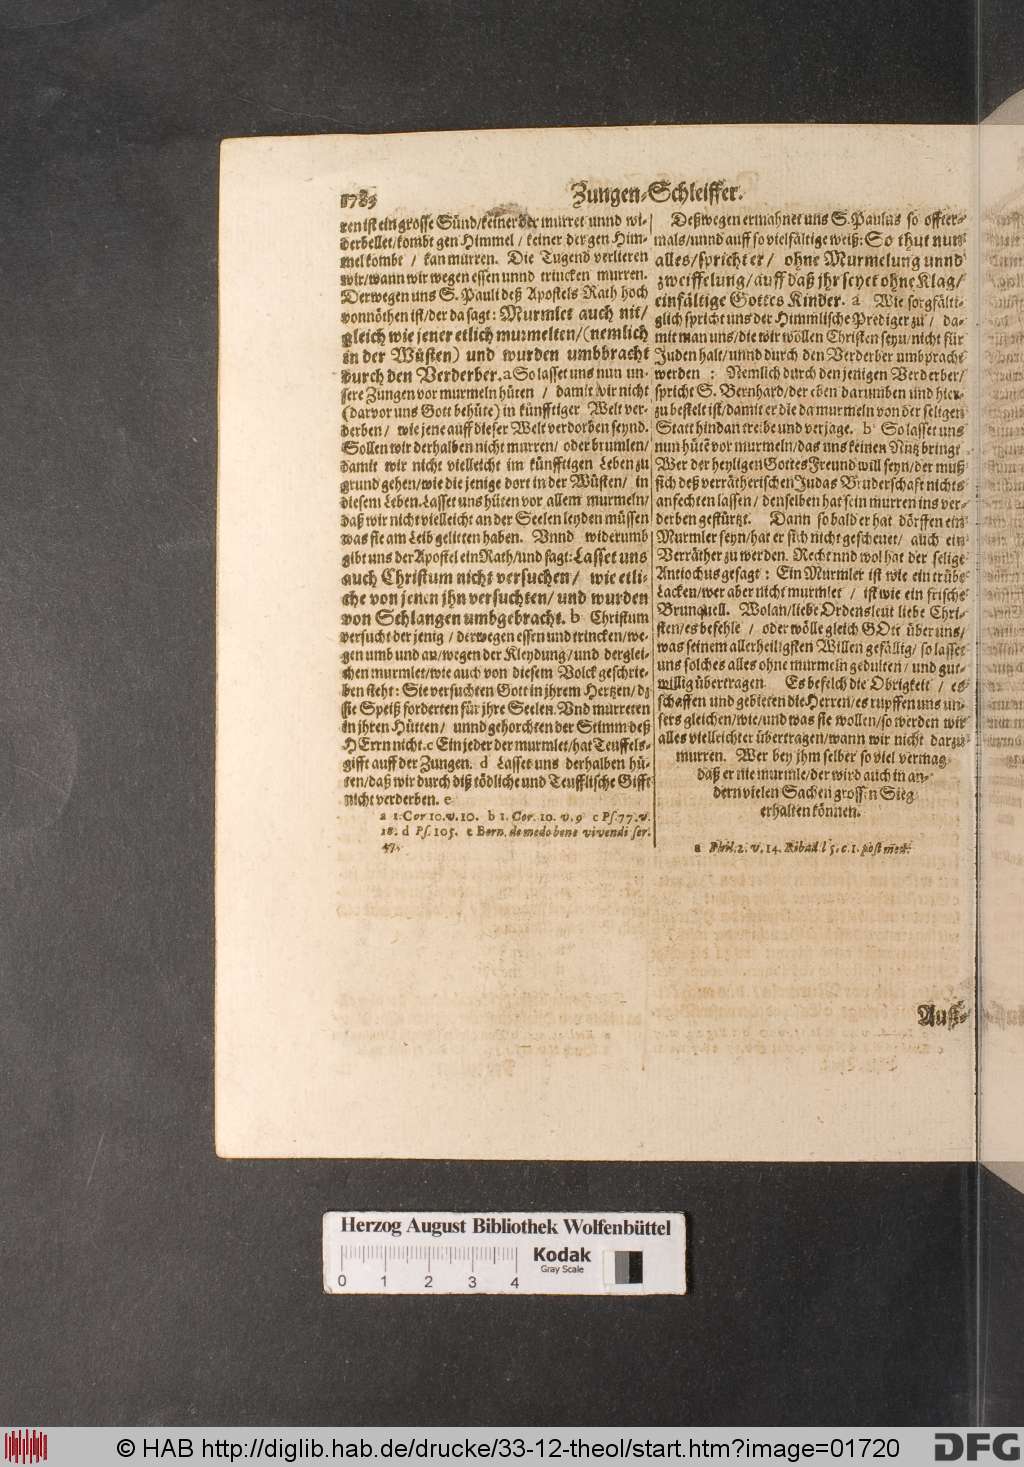 Zungen-Schleiffer.
ren ist ein grosse Sünd/keiner der murret unnd wi-
derbellet/kombt gen Himmel / keiner der gen Him-
mel kombt / kan murren. Die Tugend verlieren
wir/wann wir wegen essen unnd trincken murren.
Derwegen uns S. Pauli deß Apostels Rath hoch
vonnöthen ist/der da sagt: Murmlet auch nit/
gleich wie jener etlich murmelten/(nemlich
in der Wüsten) und wurden umbbracht
durch den Verderber. a So lasset uns nun un-
sere Zungen vor murmeln hüten / damit wir nicht
(darvor uns Gott behüte) in künfftiger Welt ver-
derben / wie jene auff dieser Welt verdorben seynd.
Sollen wir derhalben nicht murren/ oder brumlen/
damit wir nicht vielleicht im künfftigen Leben zu
grund gehen/wie die jenige dort in der Wüsten/ in
diesem Leben. Lasset uns hüten vor allem murmeln/
daß wir nicht vielleicht an der Seelen leyden müssen
was sie am Leib gelitten haben. Unnd widerumb
gibt uns der Apostel ein Rath/und sagt: Lasset uns
auch Christum nicht versuchen/ wie etli-
che von jenen ihn versuchten/ und wurden
von Schlangen umbgebracht. b Christum
versucht der jenig / derwegen essen und trincken/we-
gen umb und an/wegen der Kleydung/und derglei-
chen murmlet/wie auch von diesem Volck geschrie-
ben steht: Sie versuchten Gott in jhrem Hertzen/ dz
sie Speiß forderten für jhre Seelen. Und murreten
in jhren Hütten/ unnd gehorchten der Stimm deß
HErrn nicht. c Ein jeder der murmlet/hat Teuffels-
gifft auff der Zungen. d Lasset uns derhalben hü-
ten/daß wir durch diß tödliche und Teufflische Gifft
nicht verderben. e
a 1. Cor 10. v. 10. b 1. Cor. 10. v. 9 c Ps. 77. v.
18. d Ps. 105. e Bern. de modo bene vivendi ser.
47.
Deßwegen ermahnet uns S. Paulus so offter-
mals/unnd auff so vielfältige weiß: So thut nun
alles/ spricht er / ohne Murmelung unnd
zweiffelung/ auff daß jhr seyet ohne Klag/
einfältige Gottes Kinder. a Wie sorgfälti-
glich spricht uns der Himmlische Prediger zu / da-
mit man uns/die wir wöllen Christen seyn/nicht für
Juden halt/ unnd durch den Verderber umbpracht
werden : Nemlich durch den jenigen Verderber/
spricht S. Bernhard/der eben darumben und hier-
zu bestelt ist/damit er die da murmeln von der seligen
Statt hindan treibe und verjage. b So lasset uns
nun hütē vor murmeln/das uns keinen Nutz bringt
Wer der heyligen Gottes Freund will seyn/der muß
sich deß verrätherischen Judas Bruderschaft nichts
anfechten lassen / denselben hat sein murren ins ver-
derben gestürtzt. Dann so bald er hat dörffen ein
Murmler seyn/hat er sich nicht gescheuet/ auch ein
Verräther zu werden. Recht und wol hat der selige
Antiochus gesagt : Ein Murmler ist wie ein trübe
Lacken/wer aber nicht murmlet / ist wie ein frische
Brunquell. Wolan/liebe Ordensleut liebe Chri-
sten/es befehle / oder wölle gleich GOtt über uns/
was seinem allerheiligsten Willen gefällig/ so lasset
uns solches alles ohne murmeln gedulten / und gut-
willig übertragen Es befelch die Obrigkeit / es
schaffen und gebieten die Herren/es rupffen uns un-
sers gleichen/wie/und was sie wollen/so werden wir
alles vielleichter übertragen/wann wir nicht darzu
murren. Wer bey jhm selber so viel vermag
daß er nie murmle/der wird auch in an-
dern vielen Sachen grossen Sieg
erhalten können.
a Phil. 2. v. 14. Ribad. l 5. c. 1. post med.
Auß-
Herzog August Bibliothek Wolfenbüttel
Kodak
Gray Scale
0 1 2 3 4
© HAB http://diglib.hab.de/drucke/33-12-theol/start.htm?image=01720
DFG